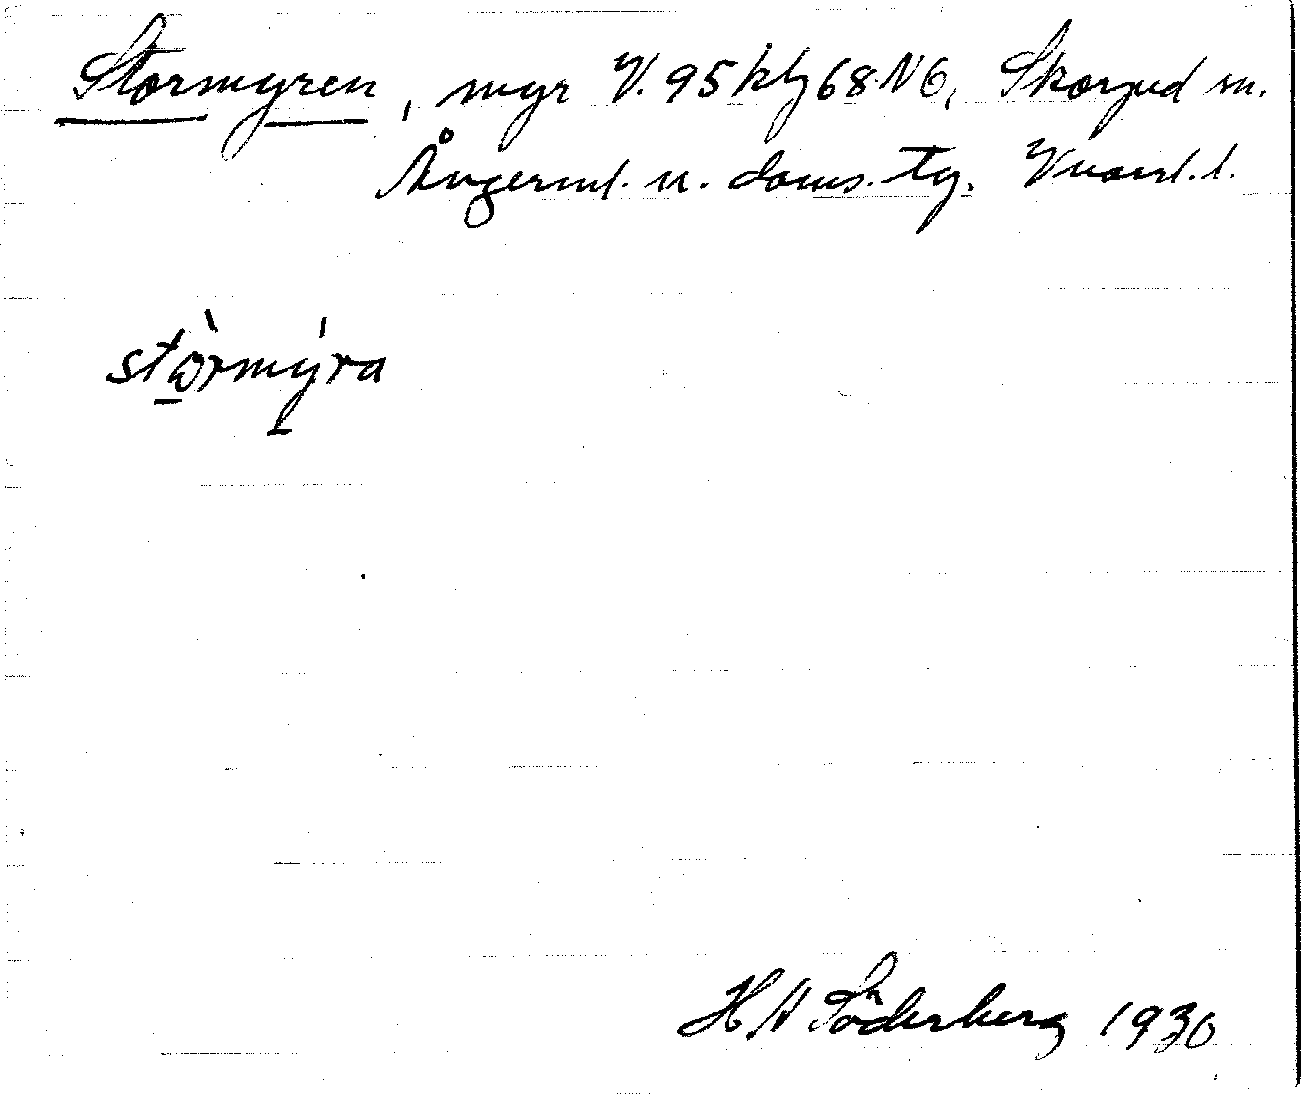 Stormyren, myr V. 95 kbg 68 NO, Skorped sn.
Ångerml. n. doms. tg. Vnorrl. l.
stòrmýra
H A Söderberg 1930